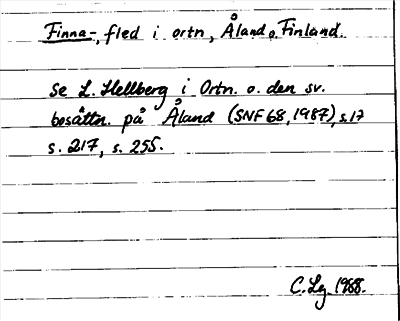 Finna-, fled i ortn, Åland o. Finland.
Se L. Hellberg i Ortn. o. den sv.
bosättn. på Åland (SNF 68, 1987), s. 17
s. 217, s. 255.
C. Lg. 1988.